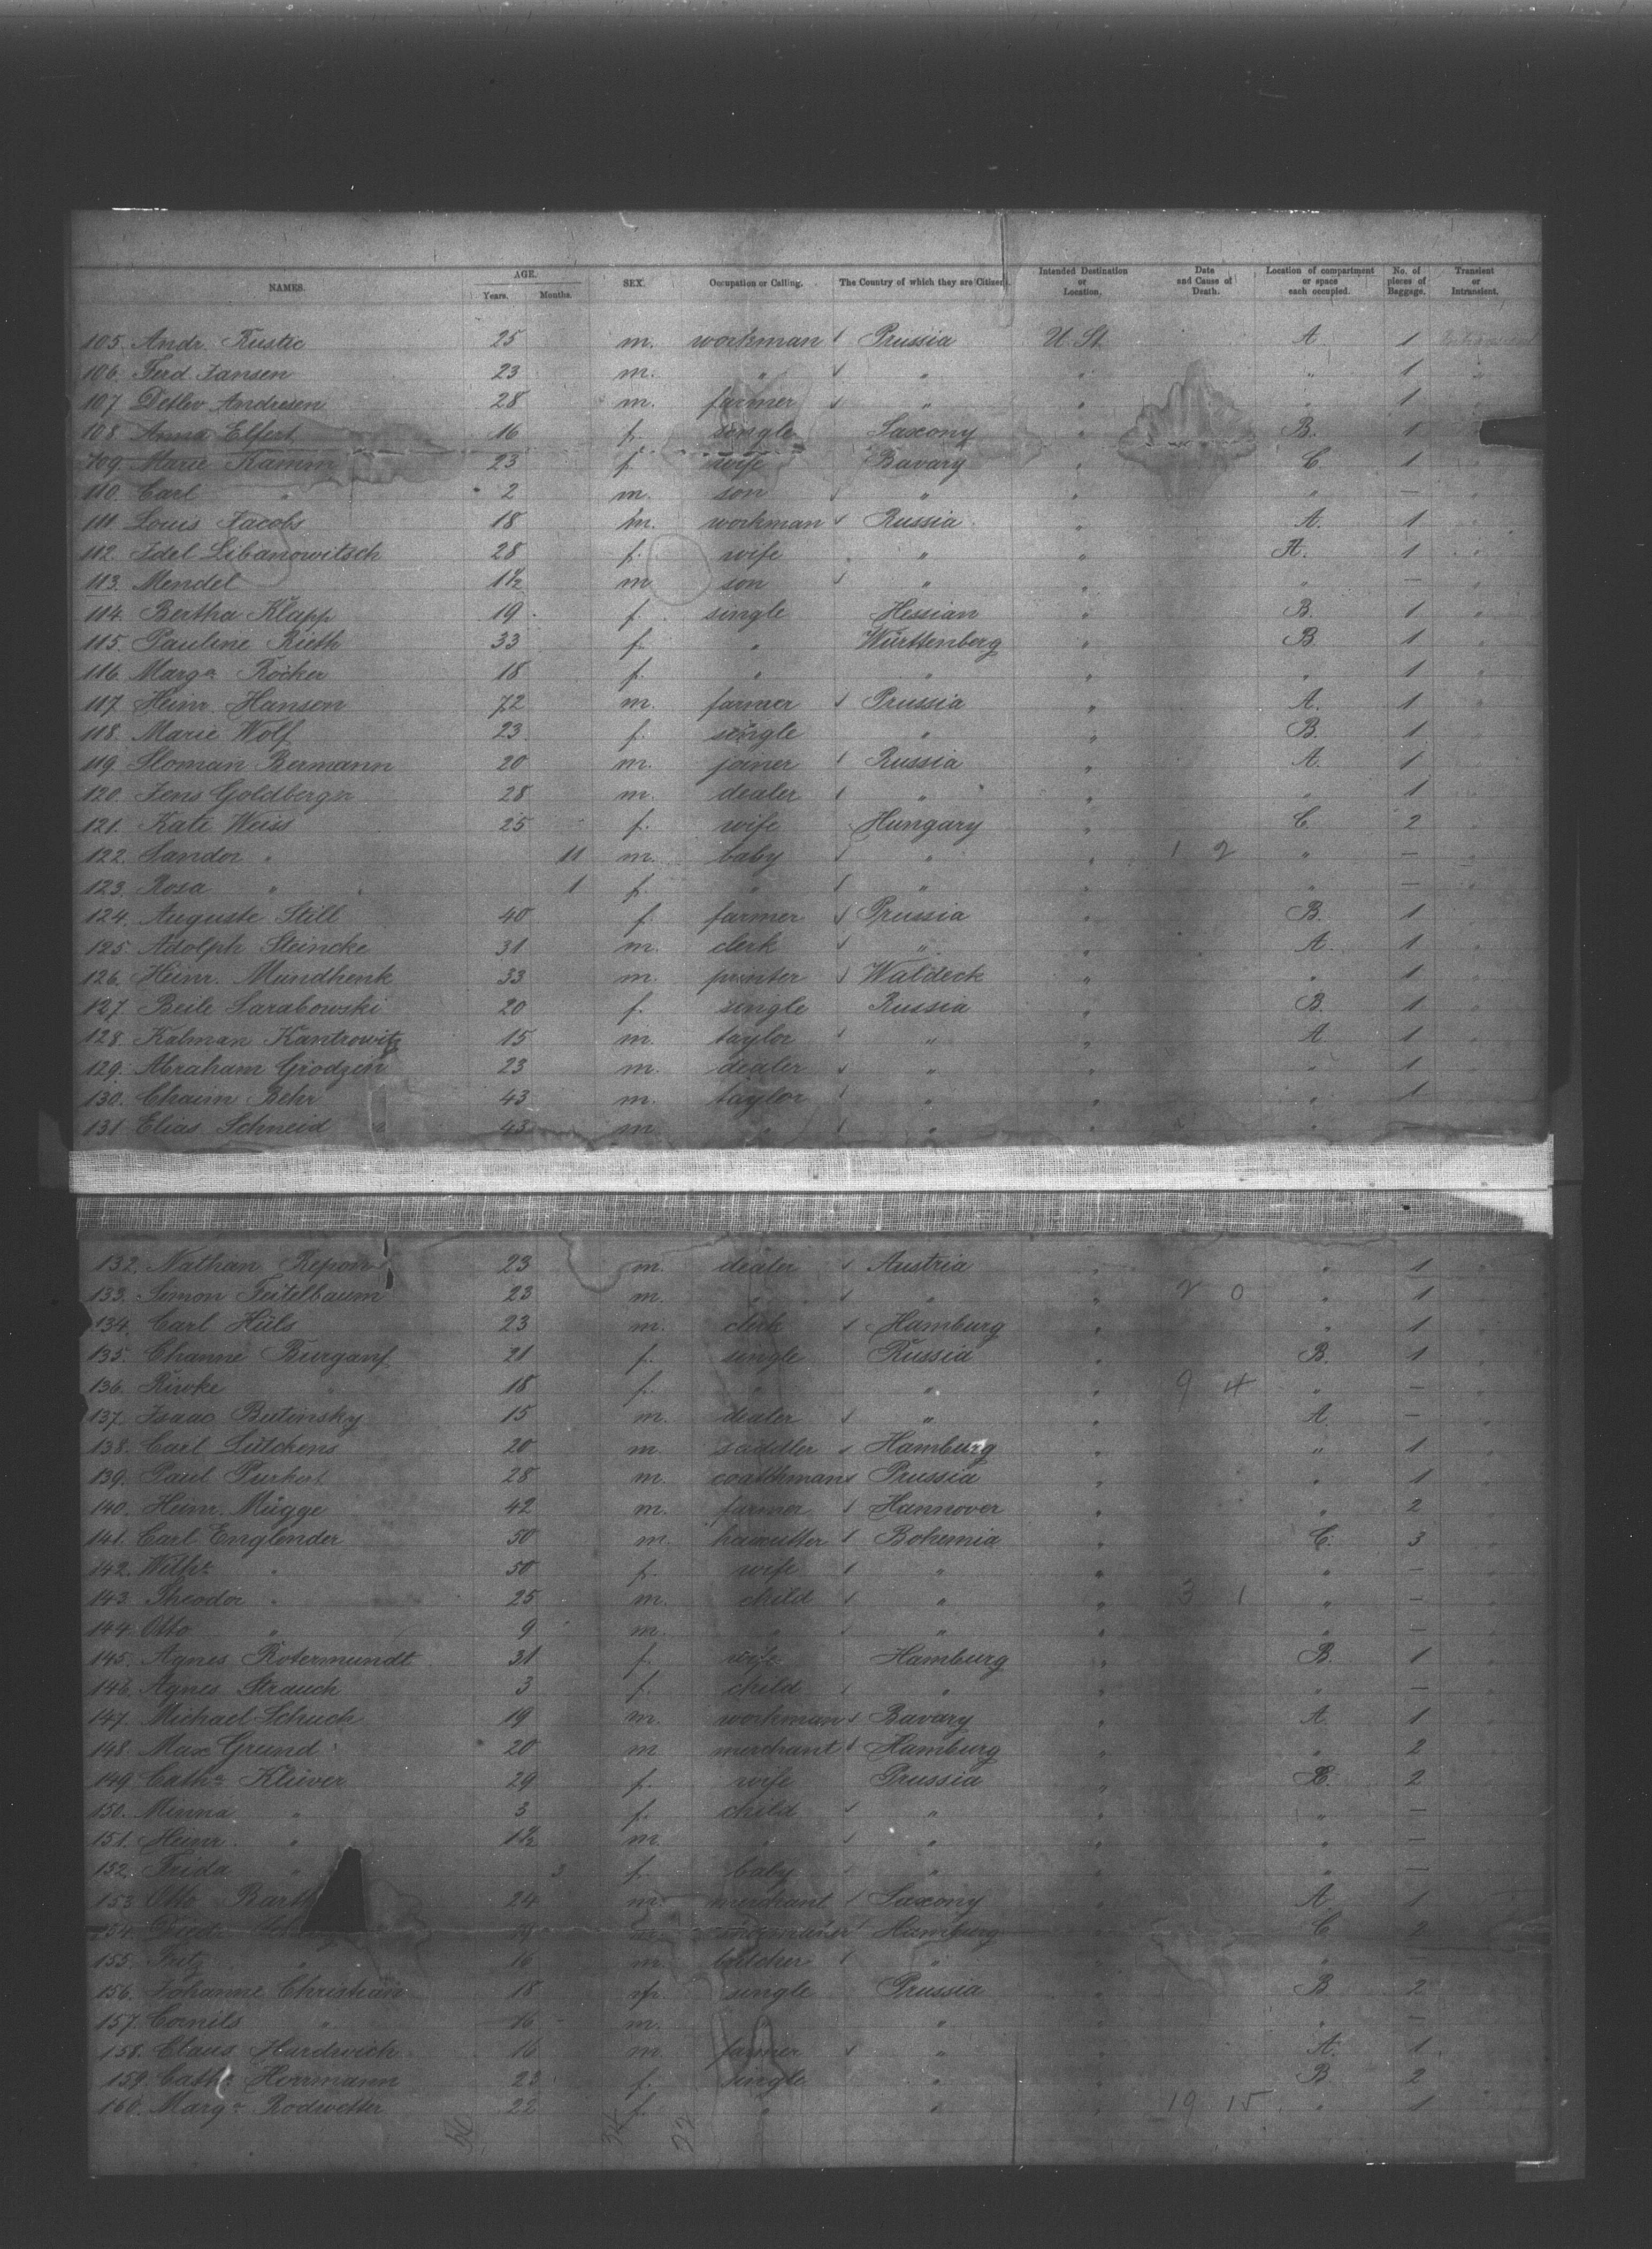 NAMES. AGE. Years. Months. SEX. Occupation or Calling. The Country of which they are Citizens. Intended Destination or Location. Date and Cause of Death. Location of compartment or space each occupied. No. of pieces of Baggage. Transient or Intransient.
105. Andr. Rustic 25 m. workman Prussia U. St. A. 1
106. Ferd. Jansen 23 m. " " " " 1 "
107. Detlev Andresen 28 m. farmer " " " 1 "
108. Anna Elfert 16 f. single Saxony " B. 1
109. Marie Kamm 23 f. wife Bavary " C. 1 "
110. Carl " 2 m. son " " " — "
111. Louis Jacobs 18 m. workman Russia " A. 1 "
112. Idel Libanowitsch 28 f. wife " " A. 1 "
113. Mendel 1½ m son " " " — "
114. Bertha Klapp 19 f. single Hessian " B. 1 "
115. Pauline Rieth 33 f. " Württenberg " B. 1 "
116. Marga. Röcker 18 f. " " " " 1 "
117. Heinr. Hansen 72 m. farmer Prussia " A. 1 "
118. Marie Wolf 23 f. single " " B. 1 "
119. Sloman Bermann 20 m. joiner Russia " A. 1 "
120. Jens Goldberger 28 m. dealer " " " 1 "
121. Kate Weiss 25 f. wife Hungary " C. 2 "
122. Sandor " 11 m. baby " " 1 2 " — "
123. Rosa " 1 f. " " " " — "
124. Auguste Still 40 f. farmer Prussia " B. 1 "
125. Adolph Steincke 31 m. clerk " " A. 1 "
126. Heinr. Mundhenk 33 m. printer Waldeck " " 1 "
127. Beile Sarabowski 20 f. single Russia " B. 1 "
128. Kalman Kantrowitz 15 m. taylor " " A. 1 "
129. Abraham Grodzen 23 m. dealer " " " 1 "
130. Chaim Behr 43 m. taylor " " " 1 "
131. Elias Schneid 43 m. " " " " —
132. Nathan 23 m. dealer Austria " " 1 "
133. Simon Teitelbaum 23 m. " " " 2 0 " 1 "
134. Carl Hüls 23 m. clerk Hamburg " " 1 "
135. Channe Burganf 21 f. single Russia " B. 1 "
136. Riwke " 18 f. " " " 9 4 " — "
137. Isaac Butinsky 15 m. dealer " " A. — "
138. Carl Lütchens 20 m. saddler Hamburg " " 1 "
139. Paul Purkert 28 m. coatchman Prussia " " 1 "
140. Heinr. Mügge 42 m. farmer Hannover " " 2 "
141. Carl Englender 50 m. Bohemia " C. 3 "
142. Wilhe. " 50 f. wife " " " — "
143. Theodor " 25 m. child " " 3 1 " — "
144. Otto " 9 m. " " " " — "
145. Agnes Rotermundt 31 f. wife Hamburg " B. 1 "
146. Agnes Strauch 3 f. child " " " — "
147. Michael Schuck 19 m. workman Bavary " A. 1 "
148. Max Grund 20 m merchant Hamburg " " 2 "
149. Catha. Klüver 29 f. wife Prussia " B. 2 "
150. Minna " 3 f. child " " " —
151. Heinr. " 1½ m. " " " " —
152. Frida " 3 f. baby " " " —
153. Otto Barth 24 m. merchant Saxony " A. 1
154. Hamburg " C 2
155. Fritz " 16 m. butcher " " " —
156. Johanne Christian 18 f. single Prussia " B. 2
157. Cornils " 16 m. " " " " —
158. Claus Hardwich 16 m. farmer " " A. 1
159. Cath. Herrmann 23 f. single " " B. 2
160. Marga. Rodwetter 22 f. " " " 19 15 " 1 "
56 34 22